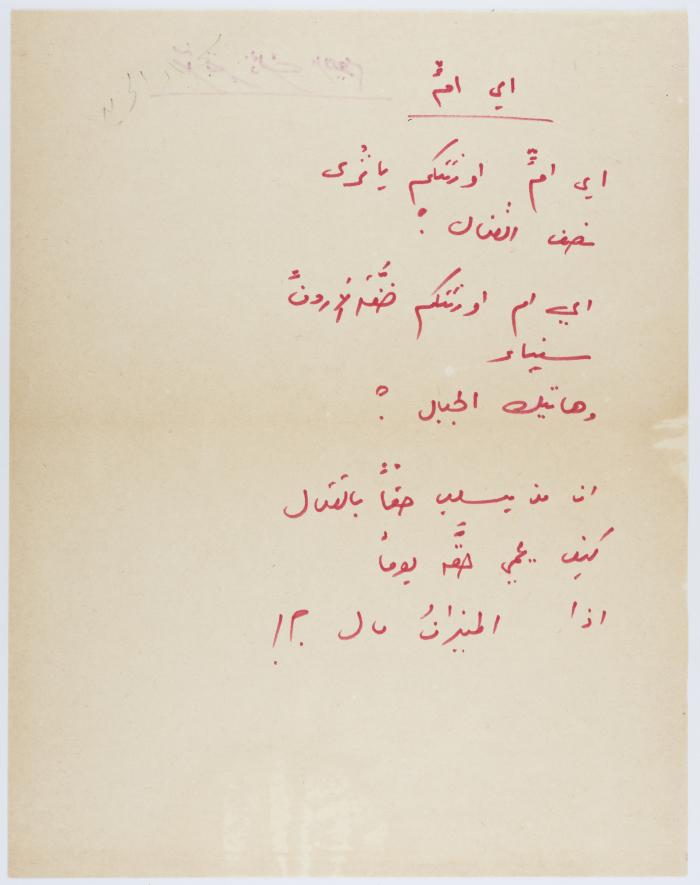 اي امٍّ
اي امٍّ اورثتكم يا تُرى
نصف القنال ؟
اي ام اورثتكم ضفّة الأردنّ
سيناء
وهاتيك الجبال ؟
ان من يسلب حقاً بالقتال
كيف يحمي حقّه يوماً
اذا الميزانُ مال ؟!